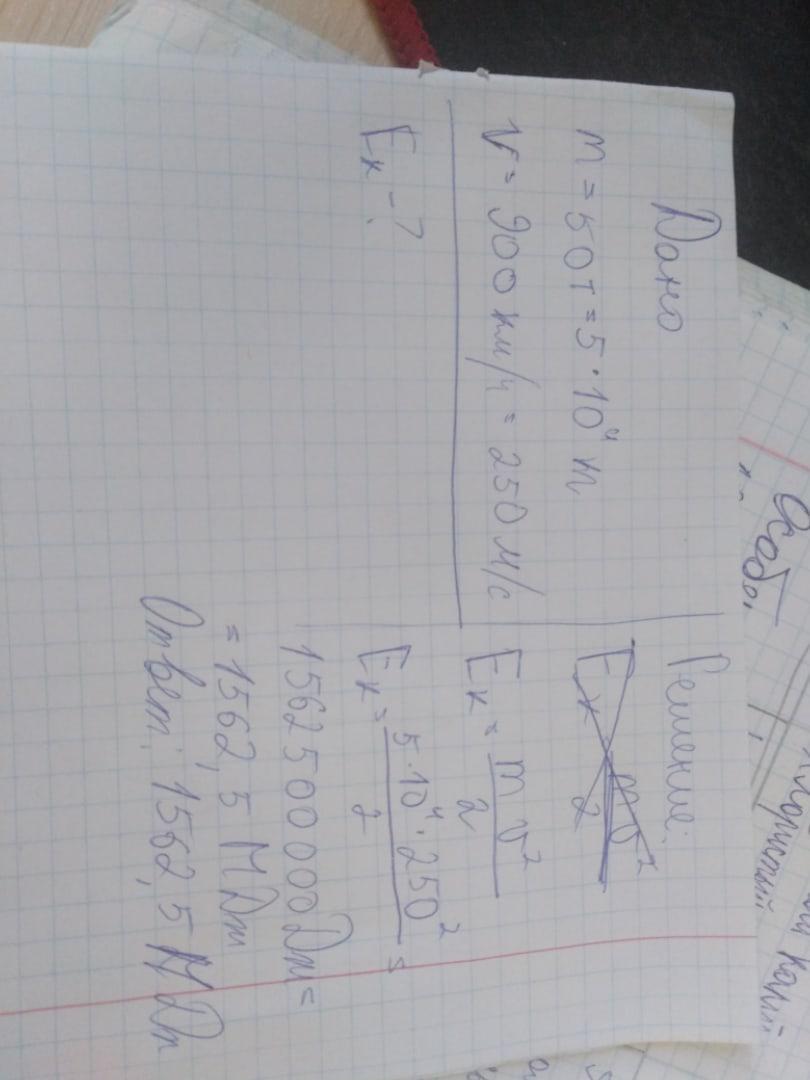 Дано
m = 50т = 5 · 10⁴ m
V = 900 км/ч = 250 м/с
Eк - ?
Решение:
Eк mv²
2
Eк = mv²
2
Eк = 5·10⁴·250² =
2
1562500000 Дж =
= 1562,5 МДж
Ответ: 1562,5 МДж
Особ